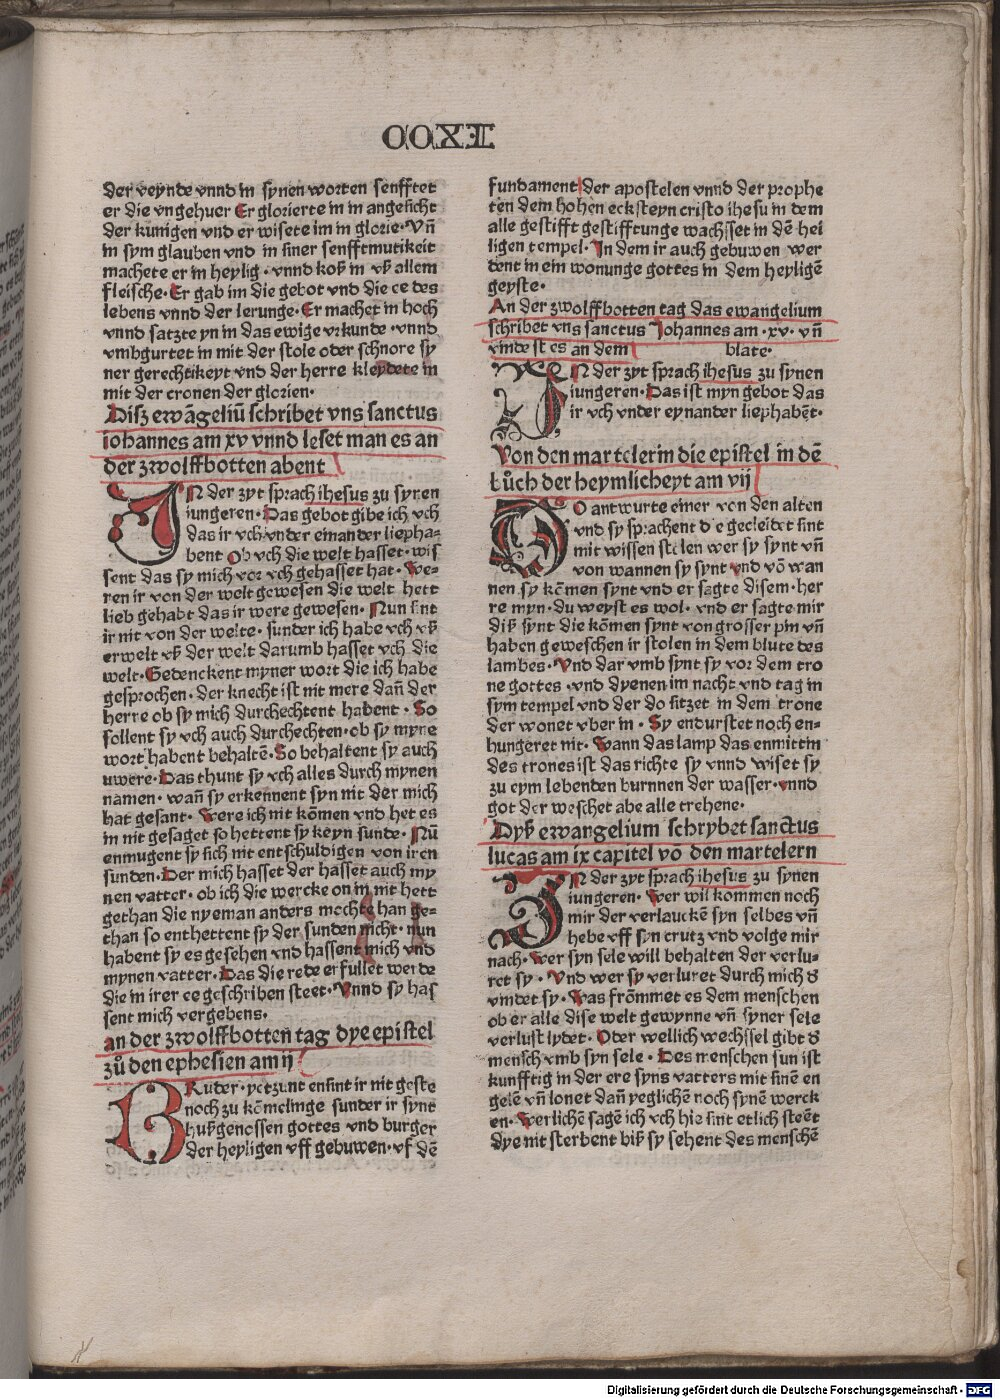 CCXI
der veynde vnnd in synen worten senfftet
er die vngehuer Er glorierte in in angesicht
der kunigen vnd er wisete im in glorie· Vñ
in sym glauben vnd in siner senfftmutikeit
machete er in heylig · vnnd koß in vß allem
fleische· Er gab im die gebot vnd die ee des
lebens vnnd der lerunge· Er machet in hoch
vnnd satzte yn in das ewige vrkunde ·vnnd
vmbgurtet in mit der stole oder schnore sy
ner gerechtikeyt vnd der herre kleydete in
mit der cronen der glorien·
Disz ewãgeliũ schribet vns sanctus
iohannes am xv vnnd leset man es an
der zwolffbotten abent
IN der zyt sprach ihesus zu synen
iungeren· Das gebot gibe ich vch
das ir vch vnder einander liepha-
bent Ob vch die welt hasset· wis
sent das sy mich vor vch gehasset hat· We-
ren ir von der welt gewesen die welt hett
lieb gehabt das ir were gewesen· Nun sint
ir nit von der welte· sunder ich habe vch vß
erwelt vß der welt darumb hasset vch die
welt· Gedenckent myner wort die ich habe
gesprochen· der knecht ist nit mere dañ der
herre ob sy mich durchechtent habent · So
sollent sy vch auch durchechten· ob sy myne
wort habent behaltẽ· So behaltent sy auch
uwere· Das thunt sy vch alles durch mynen
namen· wañ sy erkennent syn nit der mich
hat gesant· Were ich nit kõmen vnd het es
in nit gesaget so hettent sy keyn sunde· Nũ
enmugent sy sich nit entschuldigen von iren
sunden· Der mich hasset der hasset auch my
nen vatter· ob ich die wercke on in nit hett
gethan die nyeman anders mochte han ge-
than so enthettent sy der sunden nicht· nun
habent sy es gesehen vnd hassent mich vnd
mynen vatter· Das die rede erfullet werde
die in irer ee geschriben steet· Vnnd sy has
sent mich vergebens·
an der zwolffbotten tag dye epistel
zů den ephesien am ij
BRuder· yetzunt ensint ir nit geste
noch zu kõmelinge sunder ir synt
hußgenossen gottes vnd burger
der heyligen vff gebuwen· vf dẽ
fundament der apostelen vnnd der prophe
ten dem hohen ecksteyn cristo ihesu in dem
alle gestifft gestifftunge wachsset in dẽ hei
ligen tempel· In dem ir auch gebuwen wer
dent in ein wonunge gottes in dem heyligẽ
geyste·
An der zwolffbotten tag das ewangelium
schribet vns sanctus Johannes am ·xv· vñ
vindest es an dem blate·
IN der zyt sprach ihesus zu synen
iungeren· Das ist myn gebot das
ir vch vnder eynander liephabẽt·
Von den martelerin die epistel in dẽ
bůch der heymlicheyt am vij
DO antwurte einer von den alten
vnd sy sprachent die gecleidet sint
mit wissen stolen wer sy synt vñ
von wannen sy synt vnd võ wan
nen sy kõmen synt vnd er sagte disem· her
re myn· du weyst es wol· vnd er sagte mir
diß synt die kõmen synt von grosser pin vñ
haben geweschen ir stolen in dem blute des
lambes· Vnd dar vmb synt sy vor dem tro
ne gottes ·vnd dyenen im nacht vnd tag in
sym tempel vnd der do sitzet in dem trone
der wonet vber in · Sy endurstet noch en-
hungeret nit· Wann das lamp das enmittin
des trones ist das richte sy vnnd wiset sy
zu eym lebenden burnnen der wasser· vnnd
got der weschet abe alle trehene·
Dyß ewangelium schrybet sanctus
lucas am ix capitel võ den martelern
IN der zyt sprach ihesus zu synen
iungeren· Wer wil kommen noch
mir der verlauckẽ syn selbes vñ
hebe vff syn crutz vnd volge mir
nach· Wer syn sele will behalten der verlu-
ret sy · Vnd wer sy verluret durch mich d
vindet sy· Was frõmmet es dem menschen
ob er alle dise welt gewynne vñ syner sele
verlust lydet· Oder wellich wechssel gibt d
mensch vmb syn sele · Des menschen sun ist
kunfftig in der ere syns vatters mit sinẽ en
gelẽ vñ lonet dañ yeglichẽ noch synẽ werck
en· Werlichẽ sagẽ ich vch hie sint etlich steẽt
dye nit sterbent biß sy sehent des menschẽ
Digitalisierung gefördert durch die Deutsche Forschungsgemeinschaft · DFG